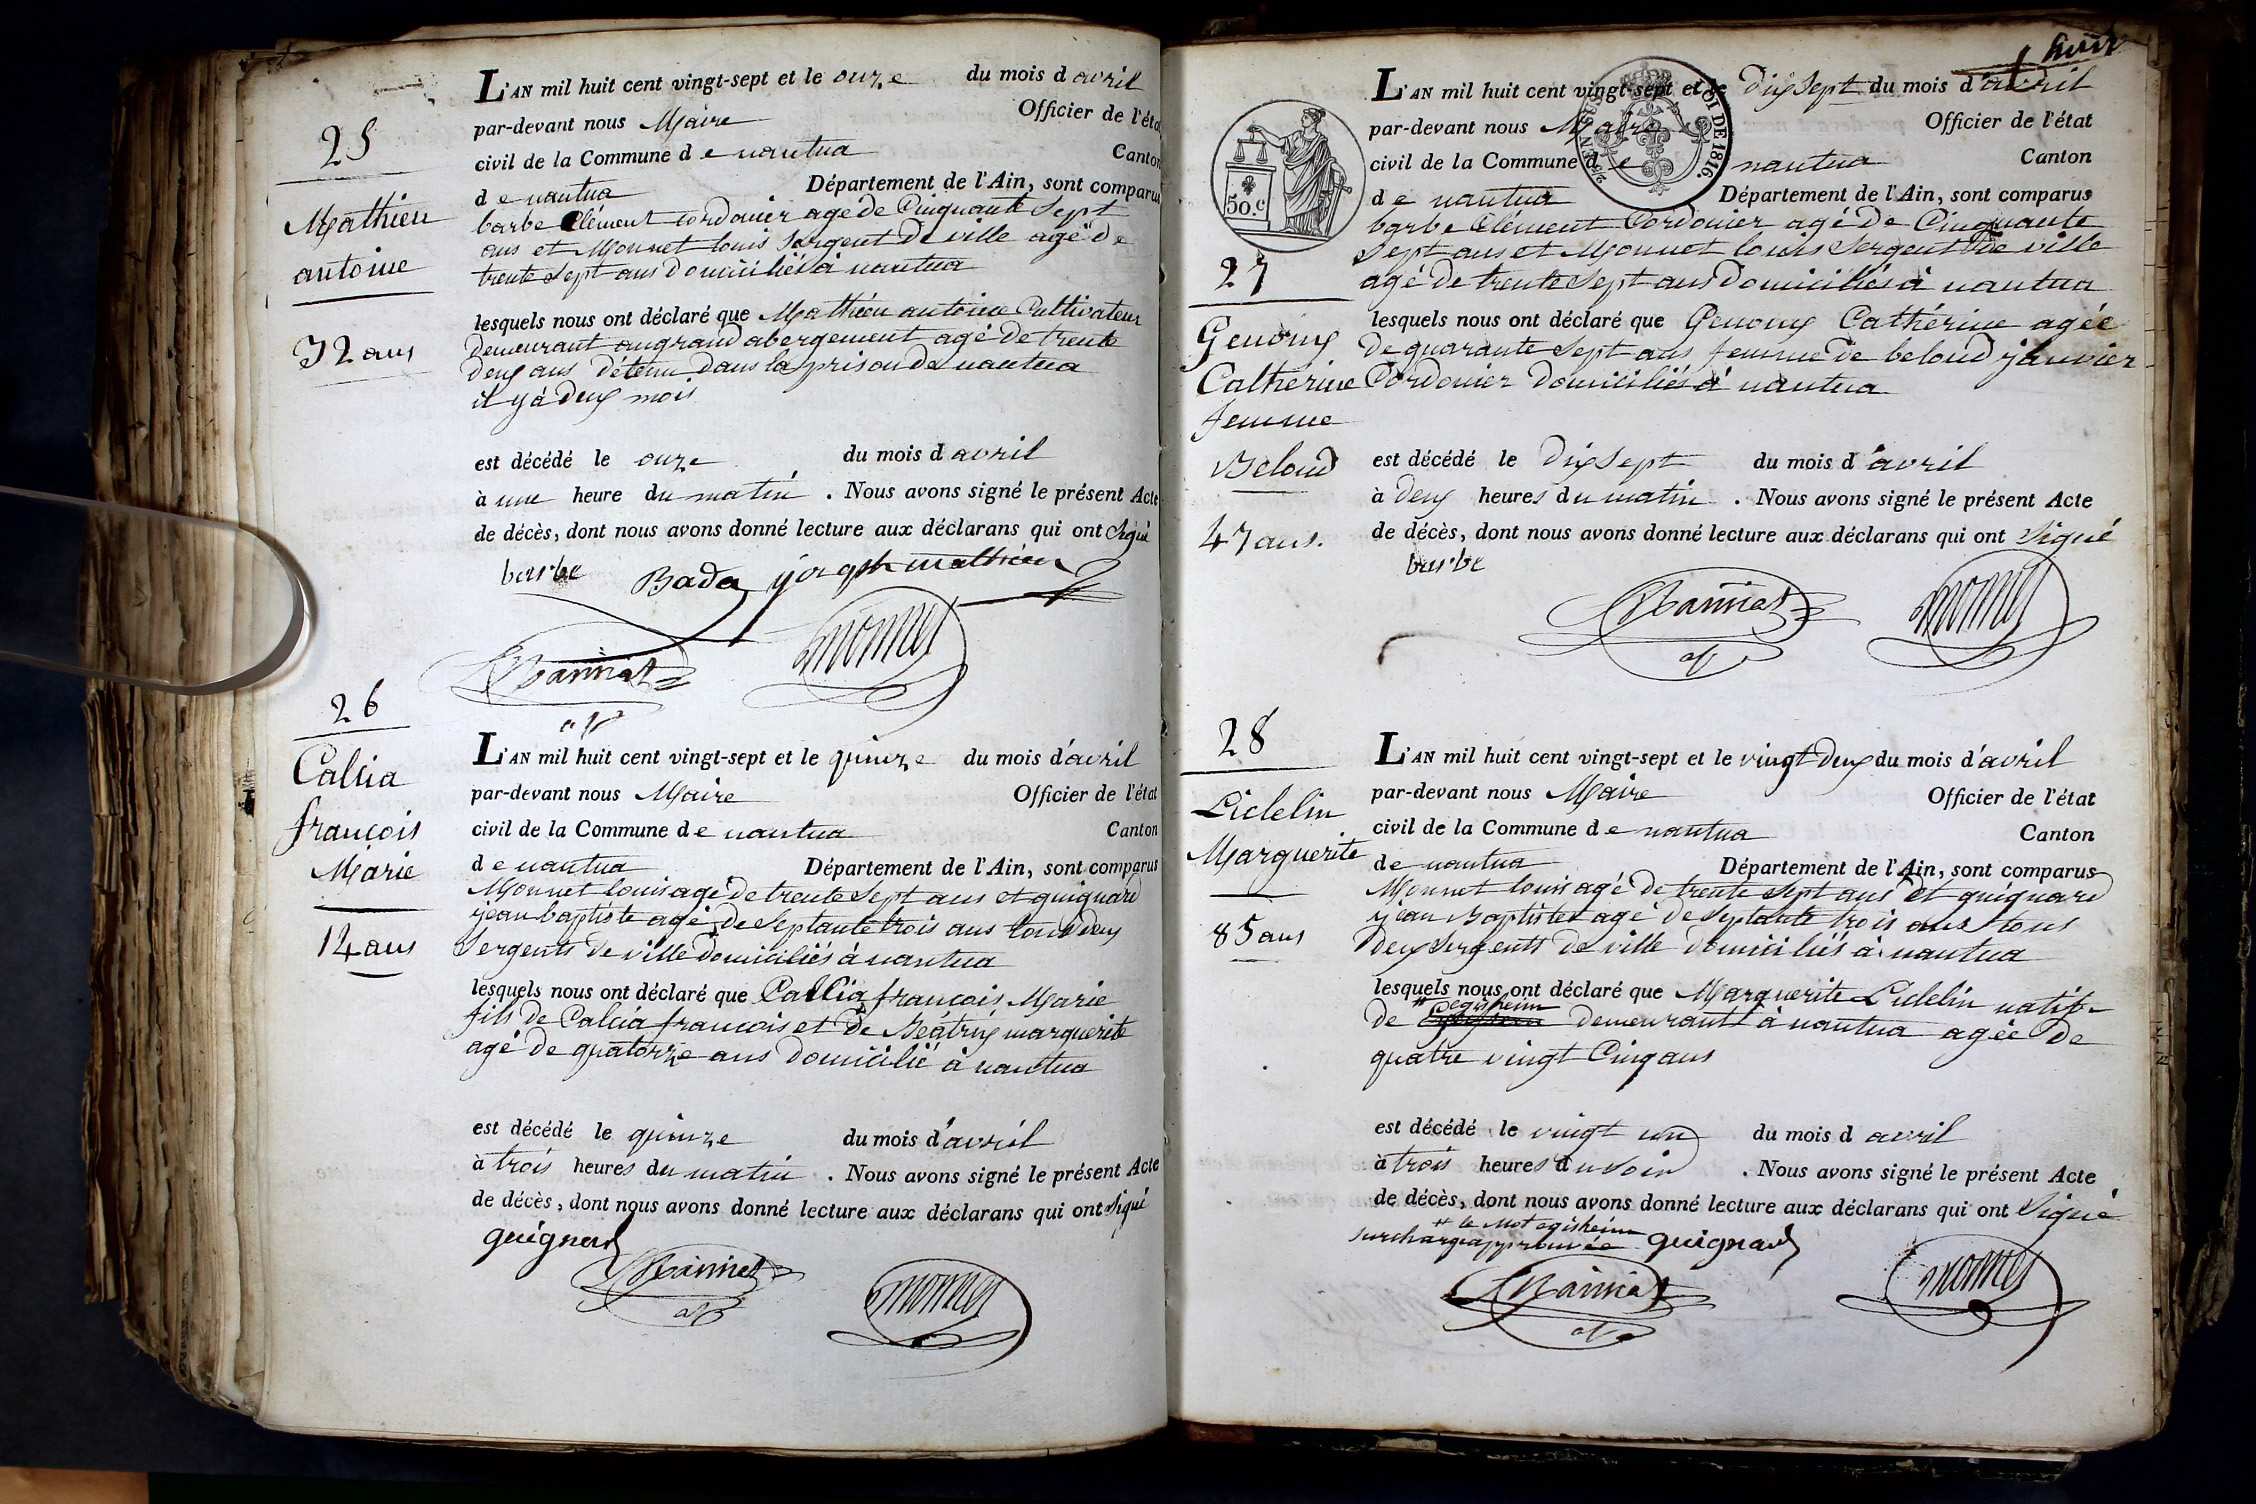 25
Mathieu
antoine
32 ans
L'AN mil huit cent vingt-sept et le onze du mois d avril
par-devant nous Maire Officier de l'éta
civil de la Commune d e nantua Canton
d e nantua Département de l'Ain, sont comparus
barbe Clément cordonier agé de Cinquante Sept
ans et Monnet louis Sergent de ville agé de
trente Sept ans domiciliés à nantua
lesquels nous ont déclaré que Mathieu antoine Cultivateur
demeurant au grand abergement agé de trente
deux ans détenu dans la prison de nantua
il y à deux mois
est décédé le onze du mois d avril
à une heure du matin . Nous avons signé le présent Acte
de décès, dont nous avons donné lecture aux déclarans qui ont Signé
barbe Badoz joseph mathieu
monnet
26
Callia
françois
Marie
14 ans
L'AN mil huit cent vingt-sept et le quinze du mois d'avril
par-devant nous Maire Officier de l'état
civil de la Commune d e nantua Canton
d e nantua Département de l'Ain, sont comparus
Monnet louis agé de trente Sept ans et guignard
jean baptiste agé de Septante trois ans tous deux
Sergents de ville domiciliés à nantua
lesquels nous ont déclaré que Callia françois Marie
fils de Callia françois et de Béatrix marguerite
agé de quatorze ans domicilié à nantua
est décédé le quinze du mois d'avril
à trois heures du matin . Nous avons signé le présent Acte
de décès, dont nous avons donné lecture aux déclarans qui ont Signé
guignard
monnet
huit
50.c
LOI DE 1816.
27
Genoux
Catherine
femme
Beloud
47 ans.
L'AN mil huit cent vingt-sept et le dix Sept du mois d'avril
par-devant nous Maire Officier de l'état
civil de la Commune d e nantua Canton
d e nantua Département de l'Ain, sont comparus
barbe Clément Cordonier agé de Cinquante
Sept ans et Monnet louis Sergent de ville
agé de trente Sept ans domiciliés à nantua
lesquels nous ont déclaré que Genoux Cathérine agée
de quarante Sept ans femme de beloud janvier
Cordonier domiciliés à nantua
est décédé le dix Sept du mois d'avril
à deux heures du matin . Nous avons signé le présent Acte
de décès, dont nous avons donné lecture aux déclarans qui ont Signé
barbe
monnet
28
Liclelin
Marguerite
85 ans
L'AN mil huit cent vingt-sept et le vingt deux du mois d'avril
par-devant nous Maire Officier de l'état
civil de la Commune d e nantua Canton
de nantua Département de l'Ain, sont comparus
Monnet louis agé de trente Sept ans et guignard
jean Baptiste agé de Septante trois ans tous
deux Sergents de ville domiciliés à nantua
lesquels nous ont déclaré que Marguerite Liclelin natif
# egisheim
de demeurant à nantua agée de
quatre vingt Cinq ans
est décédé le vingt un du mois d avril
à trois heures du soir . Nous avons signé le présent Acte
de décès, dont nous avons donné lecture aux déclarans qui ont Signé
# le Mot egisheim
surchargé approuvée guignard
monnet